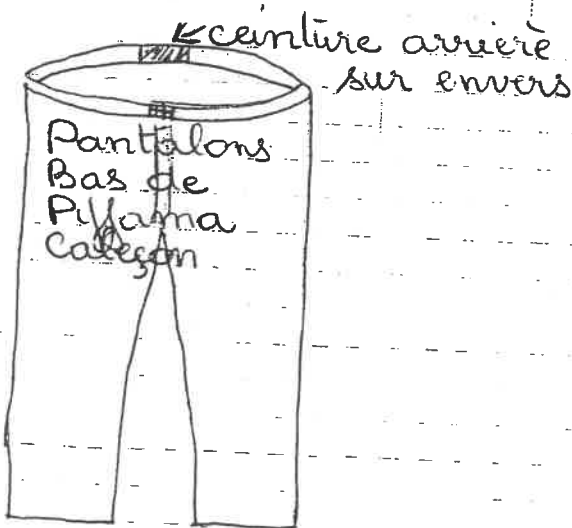 ceinture arrière
sur envers
Pantalons
Bas de
Pyjama
Caleçon